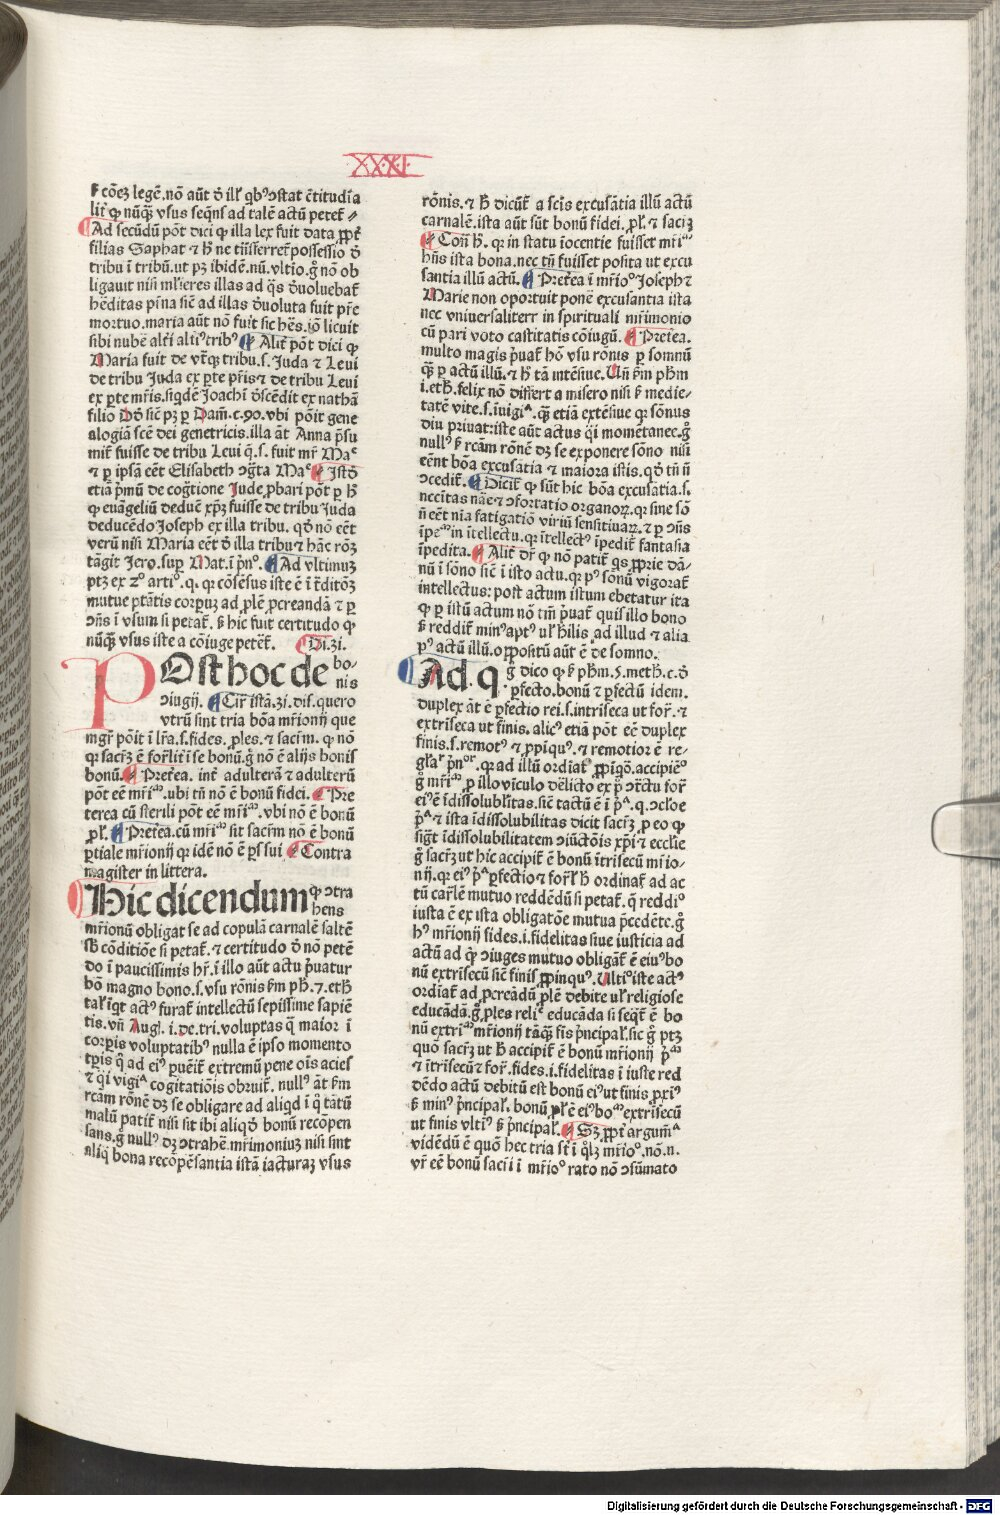 XXXI
ꝓ cōeꝫ legē. nō aūt ð ill' qbꝰ ꝯstat c̄titudīa
lit̄ ꝙ nūqꝫ vsus seqn̄s ad talē actū peret᷑
Ad secūdū pōt dici ꝙ illa lex fuit data ꝓpt̄
filias Saphat ⁊ h̄ ne trāsferret᷑ possessio ð
tribu ī tribū. ut pꝫ ibidē. nū. vltīo. g̊ nō ob
ligauit nisi mlieres illas ad q̄s ðuoluebat᷑
hēditas pr̄na sic̄ ad illas ðuoluta fuit pr̄e
mortuo. maria aūt nō fuit sic hēs. iō licuit
sibi nubē alt̄i altiꝰ tribꝰ Alit̄ pōt dici ꝙ
Maria fuit de vtͣqꝫ tribu. s. Juda ⁊ Leui
de tribu Juda ex ꝑte pr̄is ⁊ de tribu Leui
ex ꝑte mr̄is. siqdē Joachī ðscēdit ex nathā
filio Dð sic̄ pꝫ ꝑ Dam̄. c. 90. vbi pōit gene
alogiā scē dei genetricis. illa āt Anna p̄su
mit᷑ fuisse de tribu Leui q̄. s. fuit mr̄ Maᵉ
⁊ ꝑ ipsā eēt Elisabeth ꝯgͣta Maᵉ Istð
etiā p̄mū de cogͣtione Jude, ꝓbari pōt ꝑ h̄
ꝙ euāgeliū deduc̄ xp̄ꝫ fuisse de tribu Juda
deducēdo Joseph ex illa tribu. qð nō eēt
verū nisi Maria eēt ð illa tribu ⁊ hāc rōꝫ
tāgit Jero. suꝑ Mat. ī p̄nº. Ad vltimuꝫ
ptꝫ ex 2º artiº. q. qr cōsēsus iste ē ī t̄ditōꝫ
mutue ptātis corpuꝫ ad ꝓlē ꝓcreandā ⁊ ꝑ
ꝯn̄s ī vsum si petat᷑. ꝓ hic fuit certitudo ꝙ
nūqꝫ vsus iste a cōiuge petēt᷑. Di. 31.
POst hoc de bo-
nis
ꝯiugij. Cir̄ istā. 31. dis. quero
vtrū sint tria bōa mr̄ionij que
mgr̄ pōit ī lr̄a. s. fides, ꝓles. ⁊ sacr̄m. ꝙ nō
qr sacr̄ꝫ ē for̄lit̄ ī se bonū. g̊ nō ē alijs bonis
bonū. Pret̄ea. int̄ adulterā ⁊ adulterū
pōt eē mr̄iᵐ. ubi tn̄ nō ē bonū fidei. Pre
terea cū sterili pōt eē mr̄iᵐ. vbi nō ē bonū
ꝓl'. Pret̄ea. cū mr̄iᵐ sit sacr̄m nō ē bonū
ꝑtiale mr̄ionij qr idē nō ē ꝑs sui Contra
magister in littera.
Hic dicendum ꝙ ꝯtra
hens
mr̄ionū obligat se ad copulā carnalē saltē
sb̄ cōditiōe si petat᷑. ⁊ certitudo ð nō petē
do ī paucissimis hr̄. ī illo aūt actu p̄uatur
hō magno bono. s. vsu rōnis s̄m ph̄. 7. eth̄
tal' īqt actꝰ furat᷑ intellectū sepissime sapiē
tis. vn̄ Aug. i. de. tri. voluptas q̄ maior ī
corꝑis voluptatibꝰ nulla ē ipso momento
tꝑis q̊ ad eiꝰ puēit᷑ extremū pene oīs acies
⁊ qͥi vigiᵃ cogitatiōis obruit᷑. nullꝰ āt s̄m
rcam rōnē dꝫ se obligare ad aliqd ī q̊ tātū
malū patit᷑ nisi sit ibi aliqð bonū recōpen
sans. g̊ nullꝰ dꝫ ꝯtrahē mr̄imoniuꝫ nisi sint
aliq̄ bona recōpēsantia istā iacturaꝫ vsus
rōnis. ⁊ h̄ dicūt᷑ a scīs excusātia illū actū
carnalē. ista aūt sūt bonū fidei, ꝓl'. ⁊ sacrꝫ
Con̄ h̄. qr in statu īocentie fuisset mr̄iᵐ
hn̄s ista bona. nec tn̄ fuisset posita ut excu
santia illū actū. Pret̄ea ī mr̄ioº Joseph ⁊
Marie non oportuit ponē excusantia ista
nec vniuersaliterr in spirituali mr̄imonio
cū pari voto castitatis cōiugū. Pret̄ea.
multo magis p̄uat᷑ hō vsu rōnis ꝑ somnū
qꝫ ꝑ actū illū. ⁊ h̄ tā intēsiue. Un̄ s̄m ph̄m
i. eth̄. felix nō differt a misero nisi ꝓ medie-
tatē vite. s. īuigiᵃ. qꝫ etiā extēsiue qr sōnus
diu priuat: iste aūt actus qͥi mometanec. g̊
nullꝰ ꝓ rcam rōnē dꝫ se exponere sōno nisi
eēnt bōa excusātia ⁊ maiora istis. qð tn̄ n̄
ꝯcedit᷑. Dicit᷑ ꝙ sūt hic bōa excusātia. s.
nec̄itas nāe ⁊ ꝯfortatio organoꝝ. qr sine sō
n̄ eēt nīa fatigatiō viriū sensitiuaꝝ. ⁊ ꝑ ꝯn̄s
īpeᵐ in ītellectu. qr ītellectꝰ īpedit᷑ fantasia
īpedita. Alit̄ dr̄ ꝙ nō patit᷑ qs ꝓprie dā-
nū ī sōno sic̄ ī isto actu. qr pꝰ sōnū vigorat᷑
intellectus: post actum istum ebetatur ita
ꝙ ꝑ istū actum nō tm̄ p̄uat᷑ quis illo bono
ꝓ reddit᷑ minꝰ aptꝰ ul' hīlis ad illud ⁊ alia
pꝰ actū illū. oppositū aūt ē de somno.
Ad. q. g̊ dico ꝙ ꝓ ph̄m. 5. meth. c. ð
ꝑfecto. bonū ⁊ ꝑfectū idem.
duplex āt ē ꝑfectio rei. s. intriseca ut for̄. ⁊
extriseca ut finis. alicꝰ etiā pōt eē duplex
finis. s. remotꝰ ⁊ ꝓpiquꝰ. ⁊ remotior ē re-
gl'aͬ p̄nᵒʳ. qr ad illū ordiat᷑ ꝓpigō. accipiēº
g̊ mr̄iᵐ ꝓ illo viculo dēlicto ex p̄ ꝯtr̄ctu for̄
eiꝰ ē īdissolubl'itas. sic̄ tactū ē ī pͣ. q. ꝯcl'oe
pͣ ⁊ ista īdissolubilitas dicit sacr̄ꝫ ꝓ eo ꝙ
sigt̄ īdissolubilitatem ꝯiūctōis xp̄i ⁊ eccl'ie
g̊ sacr̄ꝫ ut hic accipit᷑ ē bonū ītrisecū mr̄io-
nij. qr eiꝰ pͣ ꝑfectio ⁊ for̄l' h̄ ordinat᷑ ad ac
tū carl'ē mutuo reddēdū si petat᷑. q̄ reddiº
iusta ē ex ista obligatōe mutua p̄cedēte. g̊
hꝰ mr̄ionij fides. i. fidelitas siue iusticia ad
actū ad q̊ ꝯiuges mutuo obligāt᷑ ē eiꝰ bo
nū extrisecū sic̄ finis ꝓpinquꝰ. Ultiº iste actꝰ
ordiat᷑ ad ꝓcreādū ꝓlē debite ul' religiose
educādā. g̊ ꝓles reliᵉ educāda si seqt᷑ ē bo
nū extriᵐ mr̄ionij tāqꝫ fis p̄ncipal'. sic g̊ ptꝫ
quō sacr̄ꝫ ut h̄ accipit᷑ ē bonū mr̄ionij pᵐ
⁊ ītrisecū ⁊ for̄. fides. i. fidelitas ī iuste red
dēdo actū debitū est bonū eiꝰ ut finis pxīꝰ
ꝓ minꝰ p̄ncipal'. bonū ꝓl' ē eiꝰ boᵐ extrisecū
ut finis vltiꝰ ꝓ p̄ncipal'. Sꝫ ꝓpt̄ argumᵃ
vidēdū ē quō hec tria st̄ ī ql'ꝫ mr̄ioº. nō. n.
vr̄ eē bonū sacr̄i ī mr̄ioº rato nō ꝯsūmato
Digitalisierung gefördert durch die Deutsche Forschungsgemeinschaft - DFG